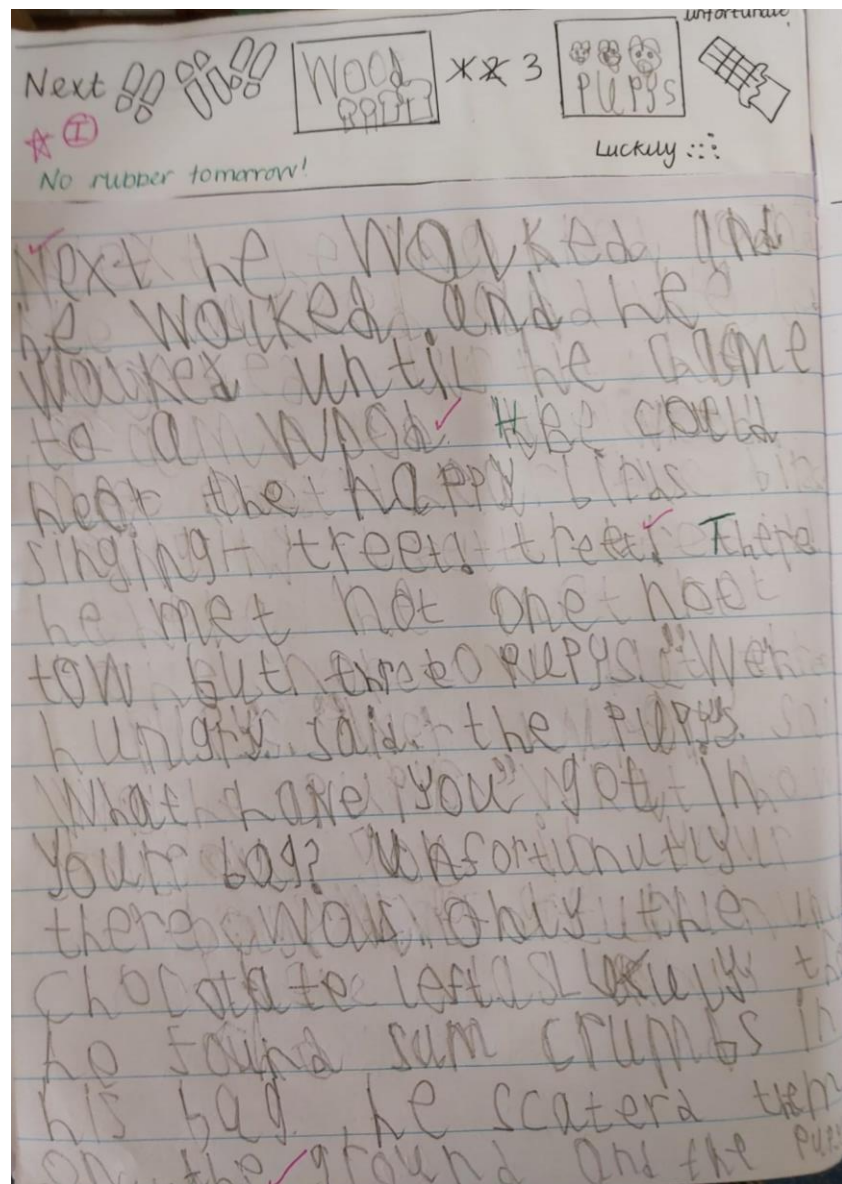 unfortunate,
Next WOOd 3 PUPYS
I
Luckily
No rubber tomorrow!
Next he Walked and
he Walked and he
Walked until he came
to a Wood. He could
hear the happy birds
singing treet! treet! There
he met not one not
tow but three PUPYS. "Wer
hungry. said. the PUPYS.
What have you" got in
Your bag? Unfortunutly
there was only the
chocolate left Lukuyy
he found sum crumbs in
his bag. he scaterd them
on the ground and the